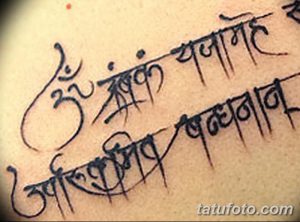 ॐ त्र्यंबकं यजामहे
उर्वारुकमिव बन्धनान्
tatufoto.com